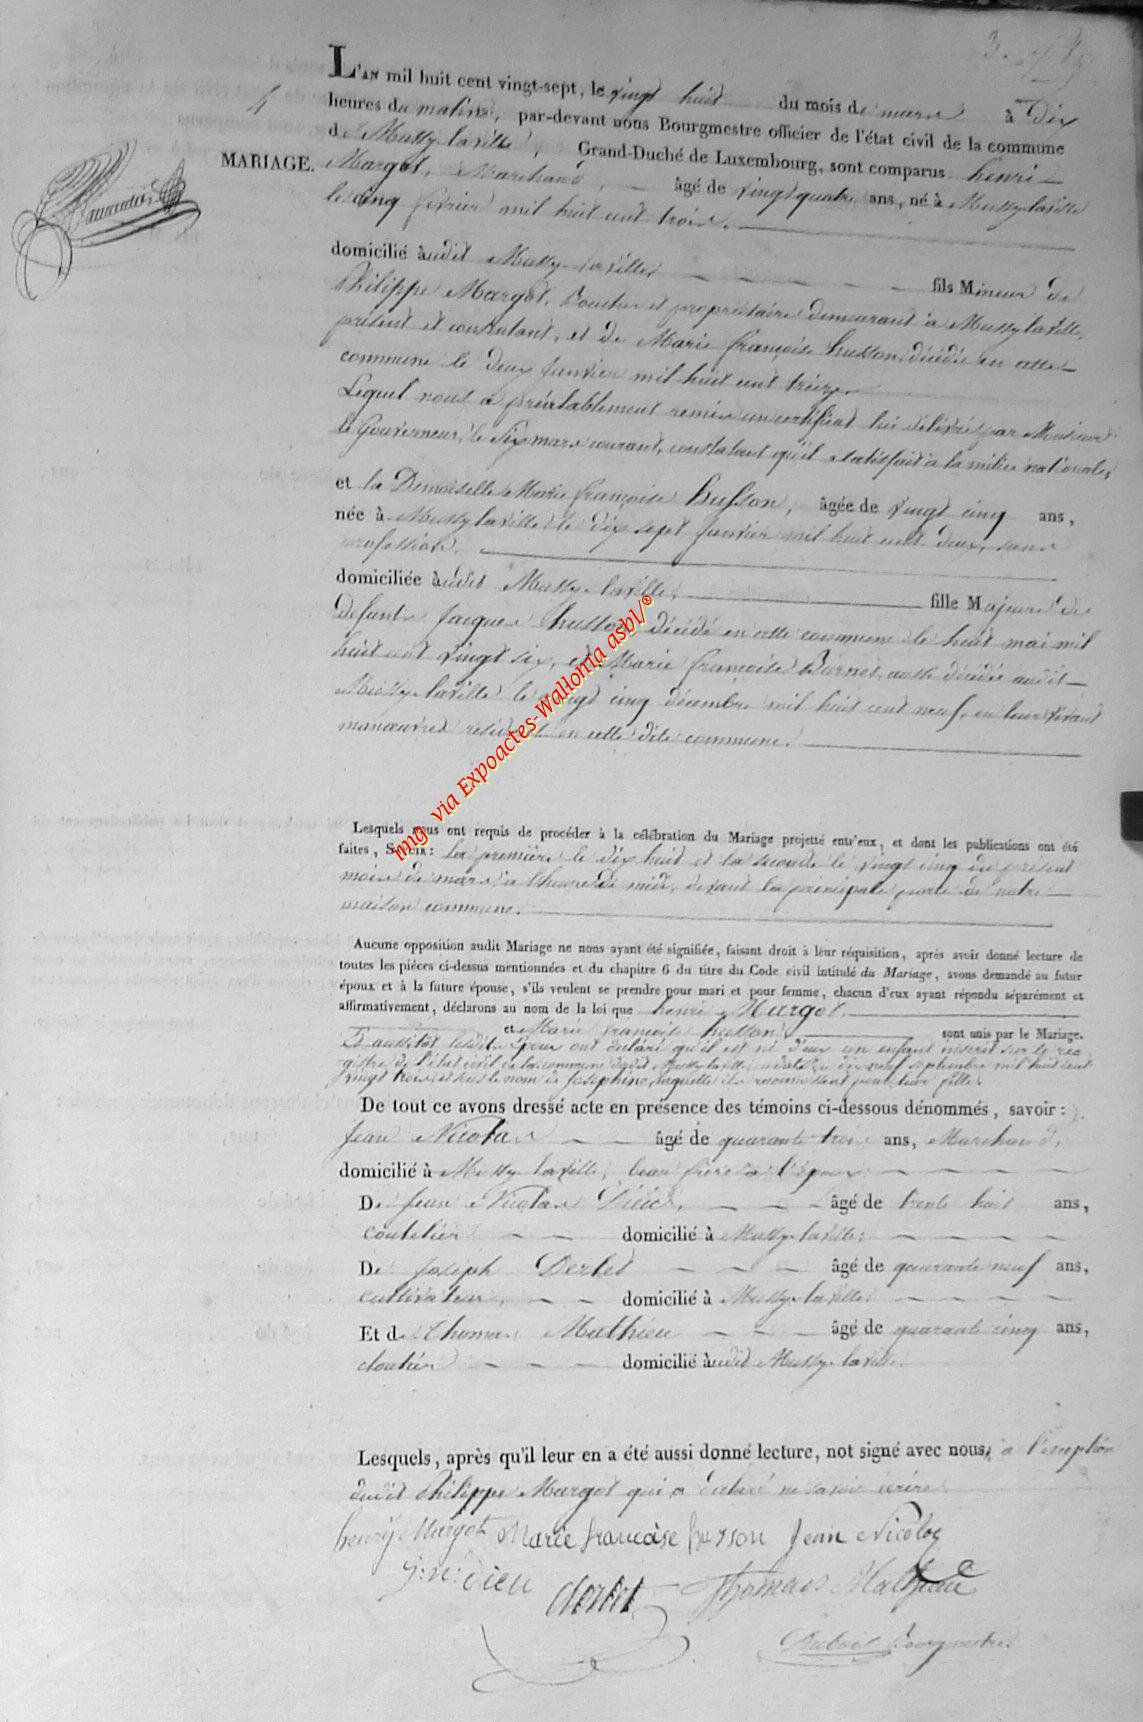 4
L'AN mil huit cent vingt-sept, le vingt huit du mois de mars à Dix
heures du matin, par-devant nous Bourgmestre officier de l'état civil de la commune
de Mussy-laville, Grand-Duché de Luxembourg, sont comparus henri
MARIAGE.
Margot, Marchand, âgé de vingt quatre ans, né à Mussylaville
le cinq fevrier mil huit cent trois.
domicilié àudit Mussy-laville, fils Mineur de
Philippe Margot, Boucher et propriétaire demeurant à Mussylaville,
présent et consentant, et de Marie françoise husson, décédée en cette
commune le deux Janvier mil huit cent treize.
Lequel nous a préalablement remis un certificat lui délivré par Monsieur
le Gouverneur, le Six mars courant, constatant qu'il a satisfait à la milice nationale,
et la Demoiselle Marie françoise husson, âgée de vingt cinq ans,
née à Mussy laville le dix sept Janvier mil huit cent deux, sans
profession.
domiciliée àudit Mussy-laville, fille Majeure de
defunts Jacques husson décédé en cette commune le huit mai mil
huit cent vingt six, et Marie françoise Barnet, aussi décédée audit
Mussy-laville le vingt cinq décembre mil huit cent neuf, en leur vivant
manœuvres résidant en cette dite commune.
img via Expoactes-Wallonia asbl/©
Lesquels nous ont requis de procéder à la célébration du Mariage projetté entr'eux, et dont les publications ont été
faites, SAVOIR: la première le dix huit et la seconde le vingt cinq du présent
mois de mars, à l'heure de midi, devant la principale porte de notre
maison commune.
Aucune opposition audit Mariage ne nous ayant été signifiée, faisant droit à leur réquisition, après avoir donné lecture de
toutes les pièces ci-dessus mentionnées et du chapitre 6 du titre du Code civil intitulé du Mariage, avons demandé au futur
époux et à la future épouse, s'ils veulent se prendre pour mari et pour femme, chacun d'eux ayant répondu séparément et
affirmativement, déclarons au nom de la loi que henri Margot.
et Marie françoise husson sont unis par le Mariage.
Et aussitôt lesdits Epoux ont declaré qu'il est né d'eux un enfant inscrit sur le re
gistre de l'état civil de la commune dudit Mussy-laville, a daté du dix neuf septembre mil huit cent
vingt trois et sous le nom de Joséphine, laquelle ils reconnaissent pour leur fille.
De tout ce avons dressé acte en présence des témoins ci-dessous dénommés, savoir:
Jean Nicolas âgé de quarante trois ans, Marchand,
domicilié à Mussy-laville, beau frère à l'époux
De Jean Nicolas Dieu, âgé de trente huit ans,
coutelier domicilié à Mussy-laville.
De Joseph Derlet âgé de quarante neuf ans,
cultivateur, domicilié à Mussy-laville.
Et de Thomas Mathieu âgé de quarante cinq ans,
cloutier domicilié àudit Mussy-laville.
Lesquels, après qu'il leur en a été aussi donné lecture, ont signé avec nous, à l'exception
dudit Philippe Margot qui a déclaré ne savoir écrire.
henry Margot Marie francoise husson Jean Nicolas
J: N: dieu derlet Thomas Mathieu
Dubois Bourgmestre